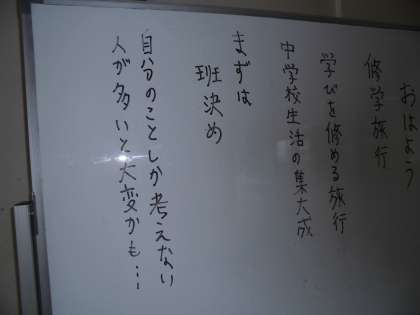 おはよう
修学旅行
学びを修める旅行
中学校生活の集大成
まずは
班決め
自分のことしか考えない
人が多いと大変かも…